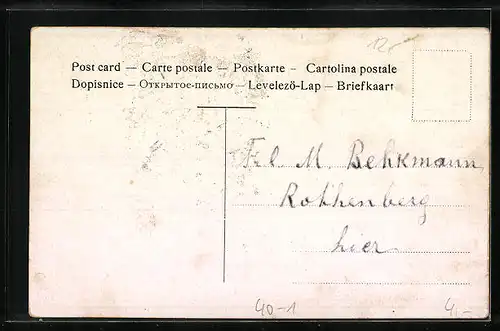 12.-
Post card — Carte postale — Postkarte – Cartolina postale
Dopisnice — Открытое-письмо — Levelező-Lap — Briefkaart
Frl. M. Behkmann
Rothenberg
hier
40-1
4.-